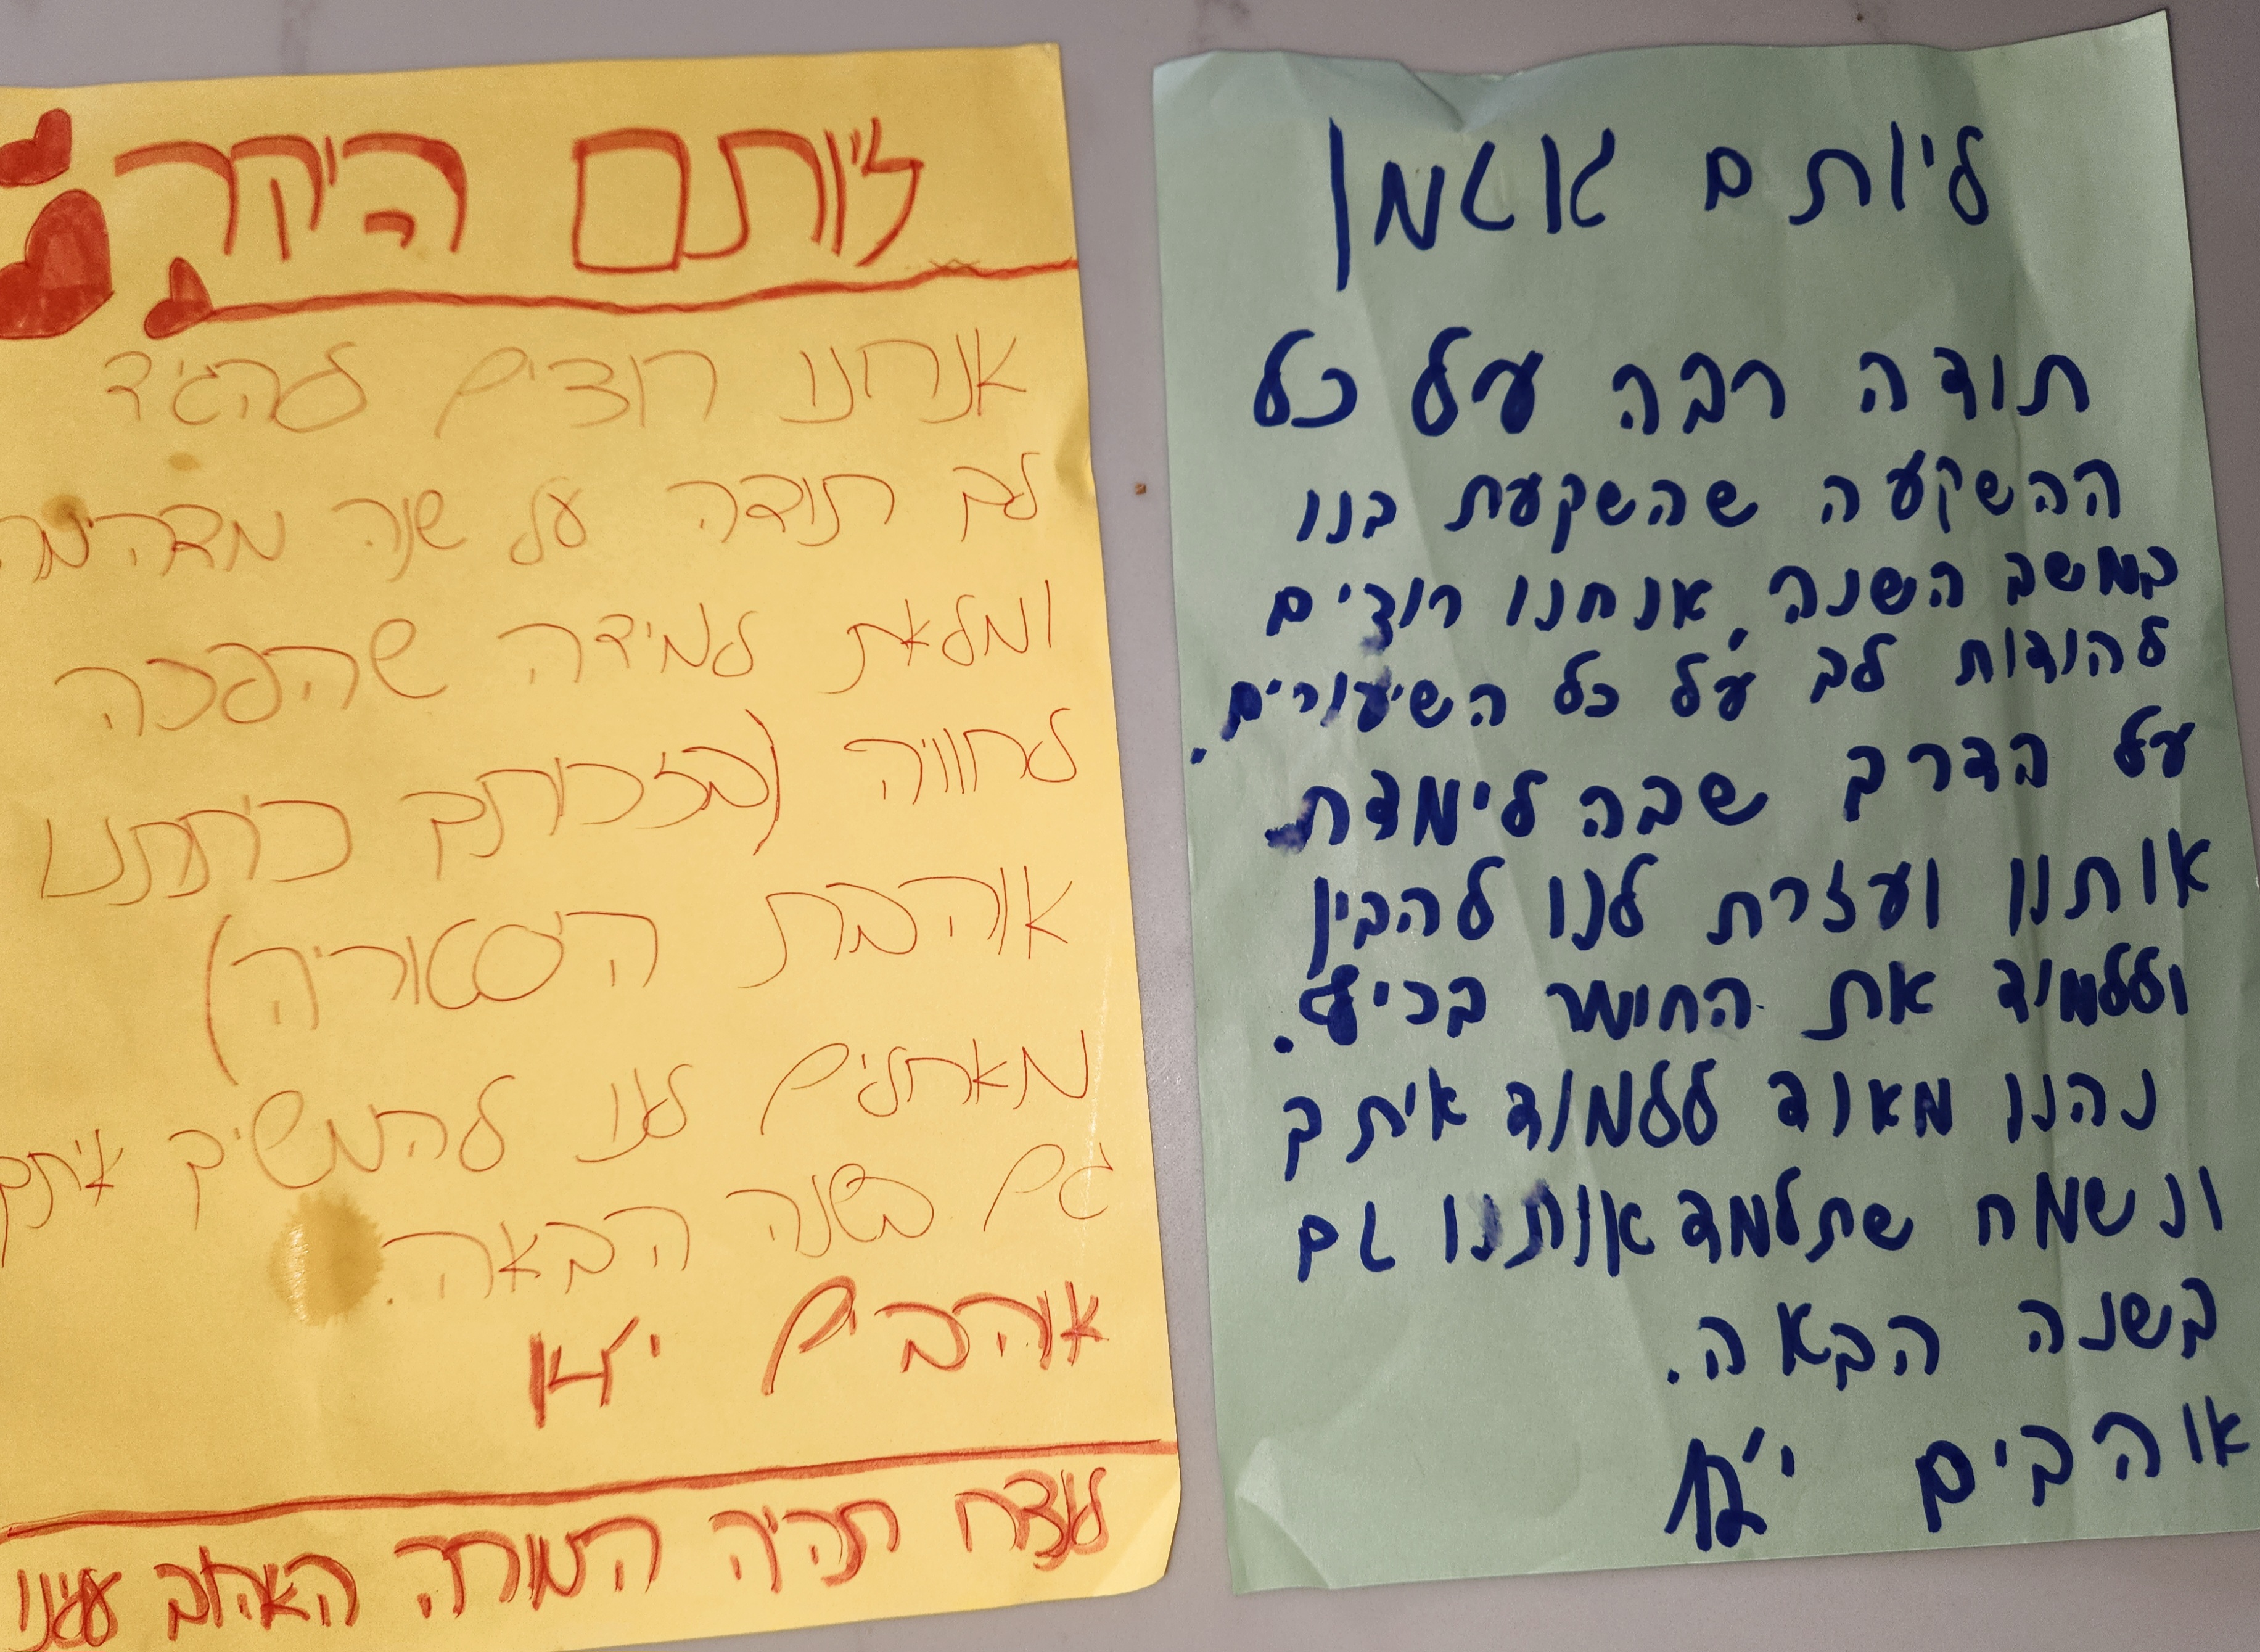 ליותם
תודה רבה על כל
ההשקעה שהשקעת בנו
במשך השנה, אנחנו רוצים
להודות לך על כל השיעורים.
על הדרך שבה לימדת
אותנו ועזרת לנו להבין
וללמוד את החומר בכיף.
נהנו מאוד ללמוד איתך
ונשמח שתלמד אותנו גם
בשנה הבאה.
אוהבים
ליותם היקר
אנחנו רוצים להגיד
לך תודה על שנה מדהימה
ומלאת למידה שהפכה
לחוויה (בזכותך כיתתנו
אוהבת היסטוריה)
מאחלים לנו להמשיך איתך
גם בשנה הבאה.
אוהבים
לנצח תהיה המורה האהוב עלינו